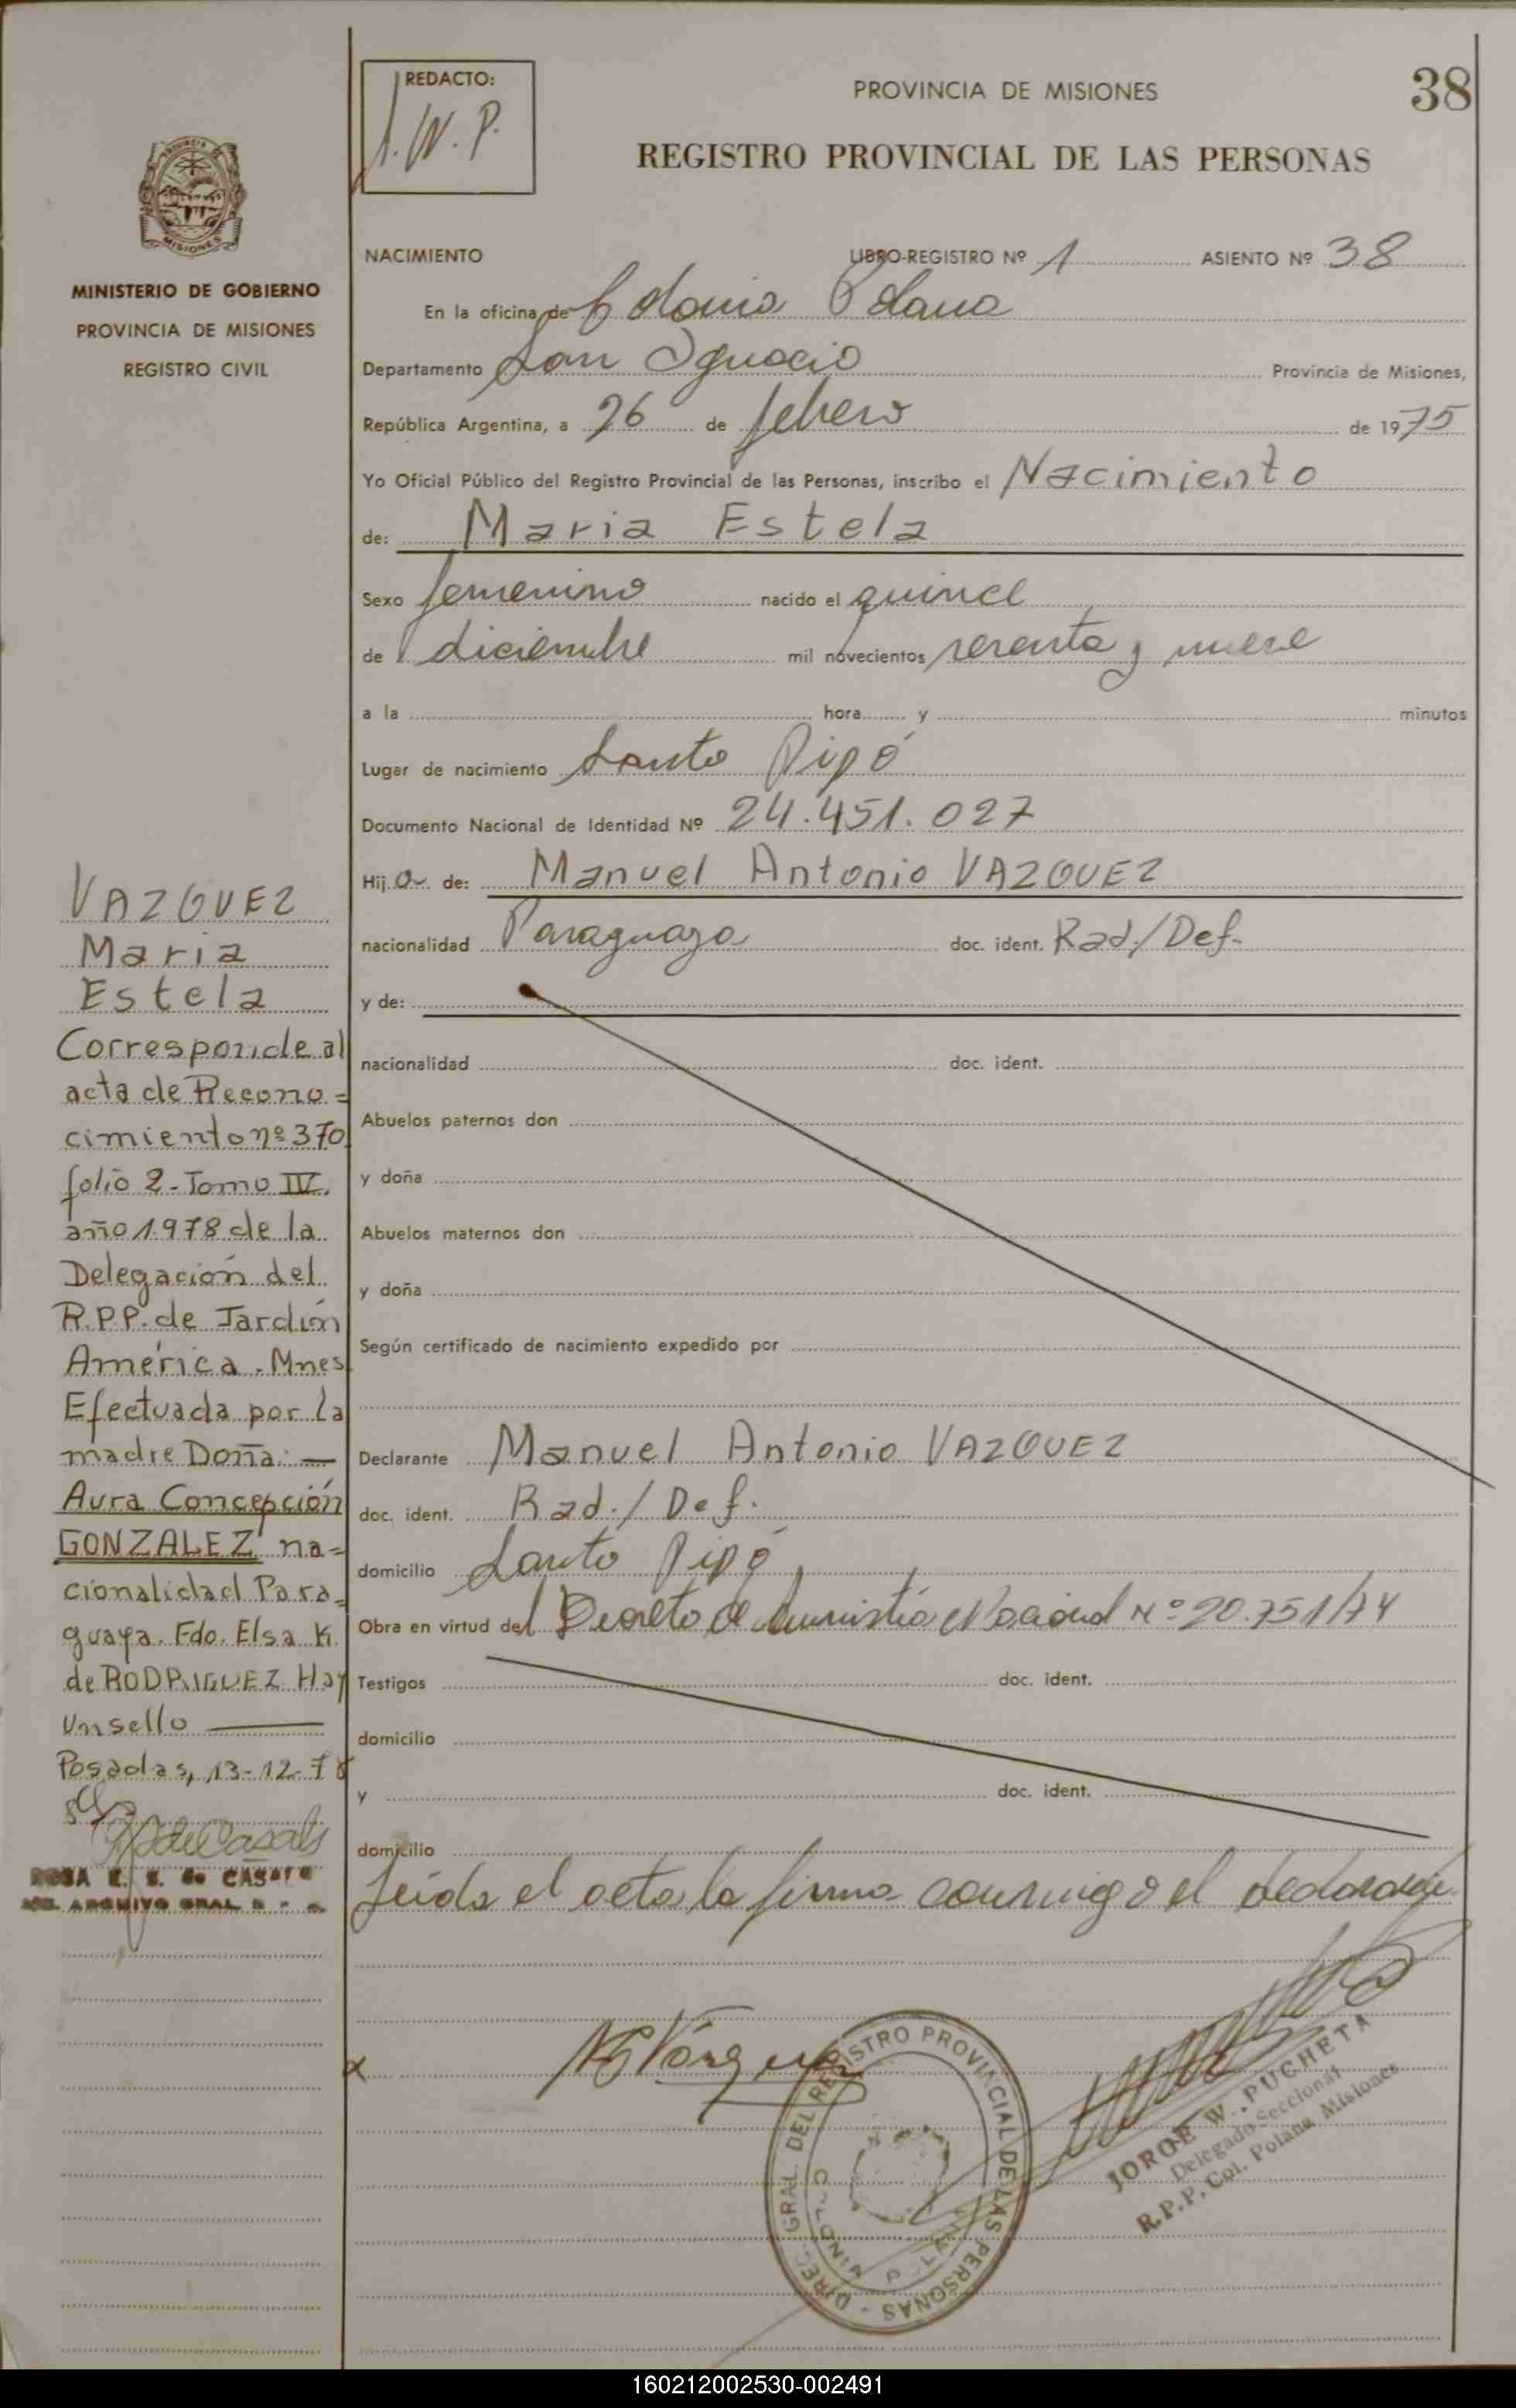 REDACTO:
J.W.P.
PROVINCIA DE MISIONES
38
REGISTRO PROVINCIAL DE LAS PERSONAS
MISIONES
MINISTERIO DE GOBIERNO
PROVINCIA DE MISIONES
REGISTRO CIVIL
NACIMIENTO LIBRO-REGISTRO Nº 1 ASIENTO Nº 38
En la oficina de Colonia Polana
Departamento San Ignacio Provincia de Misiones,
República Argentina, a 26 de febrero de 1975
Yo Oficial Público del Registro Provincial de las Personas, inscribo el Nacimiento
de: Maria Estela
Sexo femenino nacido el quince
de diciembre mil novecientos sesenta y nueve
a la hora y minutos
Lugar de nacimiento Santo Pipó
Documento Nacional de Identidad Nº 24.451.027
Hija de: Manuel Antonio VAZQUEZ
nacionalidad Paraguaya doc. ident. Rad/Def.
y de:
nacionalidad doc. ident.
Abuelos paternos don
y doña
Abuelos maternos don
y doña
Según certificado de nacimiento expedido por
Declarante Manuel Antonio VAZQUEZ
doc. ident. Rad./Def.
domicilio Santo Pipó
Obra en virtud del Decreto de Amnistia Nacional Nº 20.751/74
Testigos doc. ident.
domicilio
y doc. ident.
domicilio
Leida el acta la firma conmigo el declarante
VAZQUEZ
Maria
Estela
Corresponde al
acta de Recono=
cimiento nº 370
folio 2-Tomo IV.
año 1978 de la
Delegación del
R.P.P. de Jardín
América. Mnes
Efectuada por la
madre Doña: —
Aura Concepción
GONZALEZ na=
cionalidad Para=
guaya. Fdo. Elsa K.
de RODRIGUEZ Hay
un sello —
Posadas, 13-12-78
ROSA E. de CASALS
ARCHIVO GRAL R P
x
DIREC. GRAL. DEL REGISTRO PROVINCIAL DE LAS PERSONAS
JORGE W. PUCHETA
Delegado Seccional
R.P.P. Col. Polana Misiones
160212002530-002491